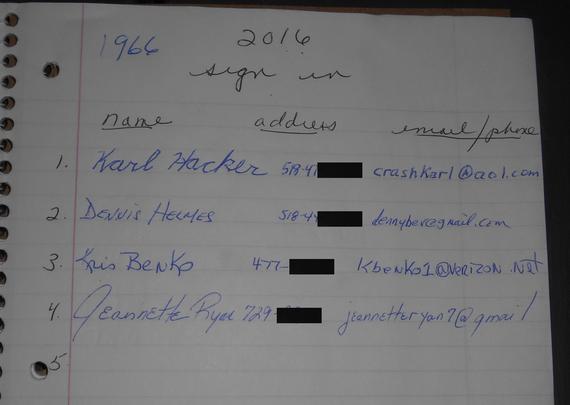 1966 2016
sign in
name address email/phone
1. Karl Hacker 518-41 crashkarl@aol.com
2. DENNIS HELMES 518-4 dennyber@gmail.com
3. Kris Benko 477- Kbenko1@verizon.net
4. Jeannette Ryan 729- jeannetteryan7@gmail
5